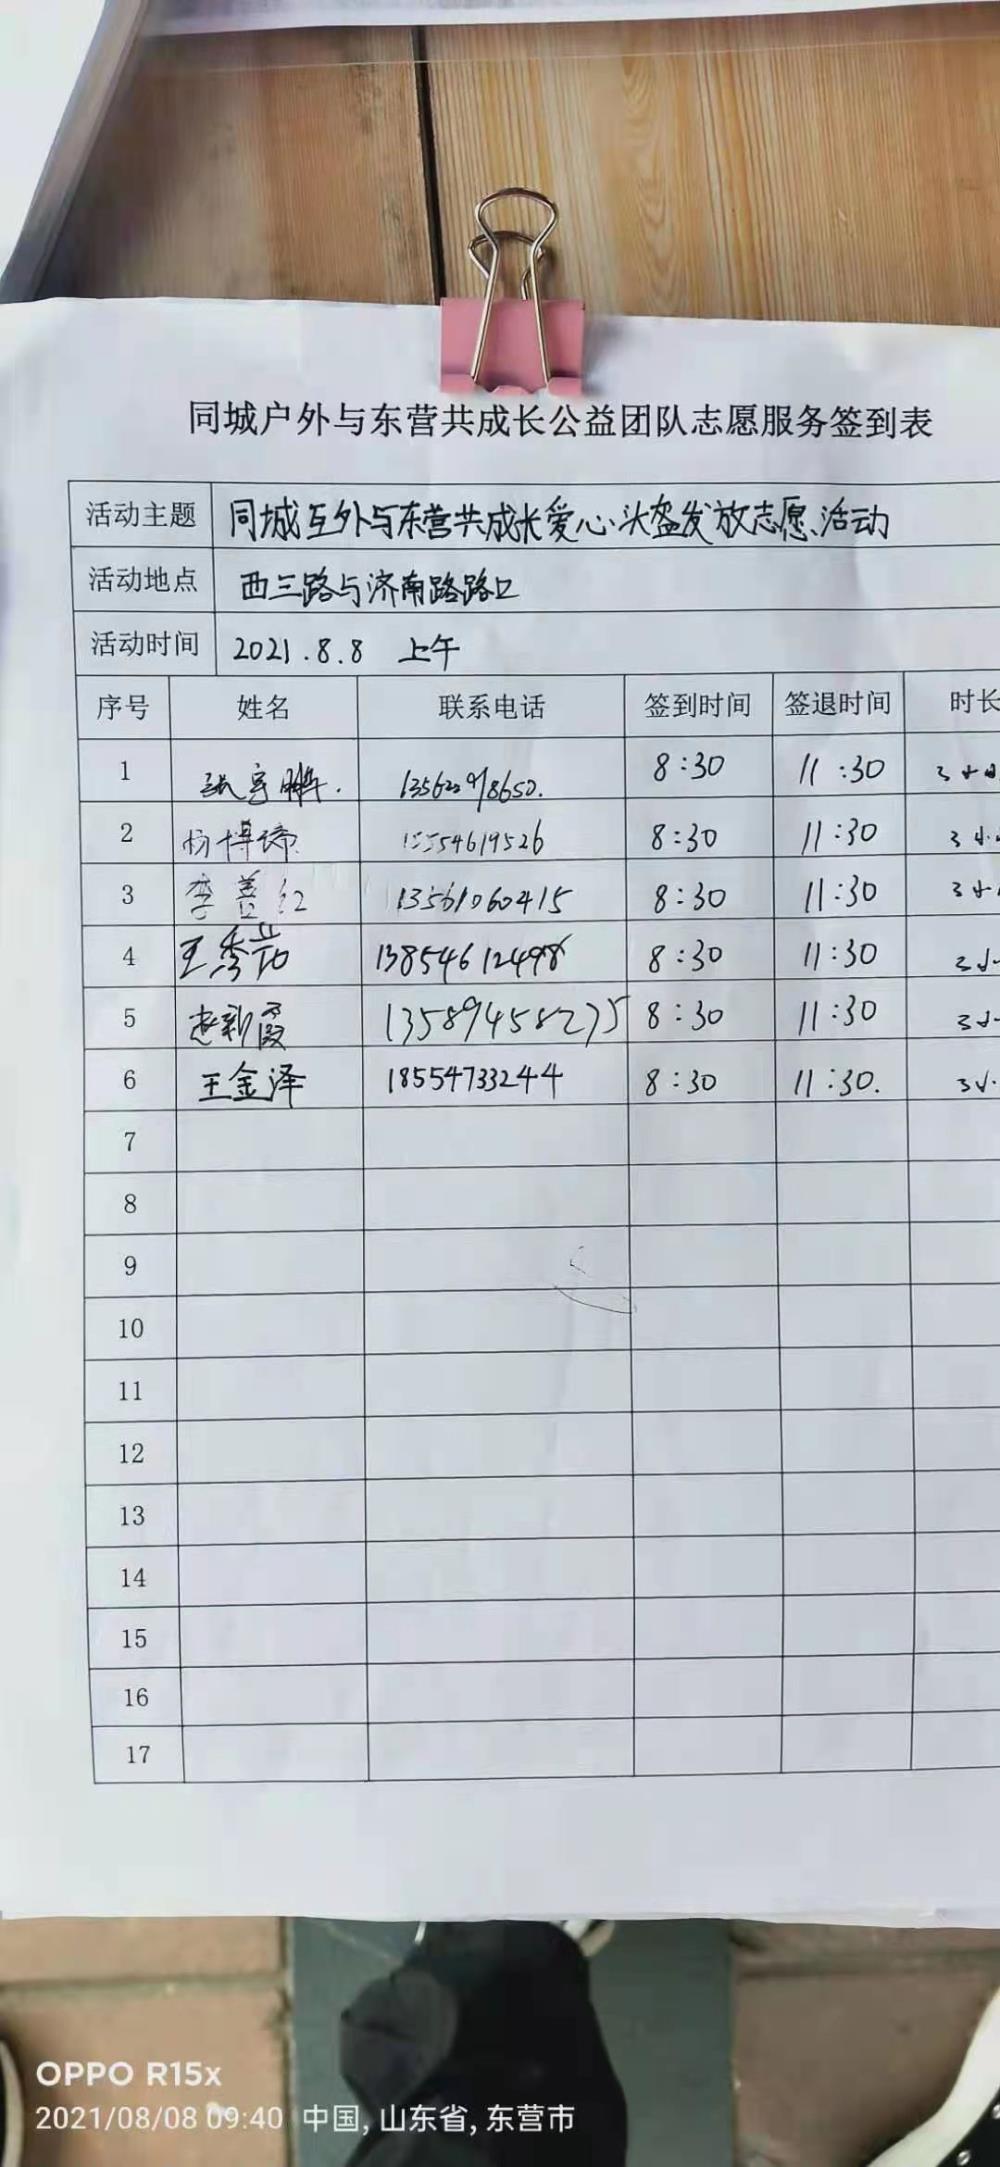 同城户外与东营共成长公益团队志愿服务签到表
活动主题 同城互外与东营共成长爱心头盔发放志愿活动
活动地点 西三路与济南路路口
活动时间 2021.8.8 上午
序号 姓名 联系电话 签到时间 签退时间 时长
1 8:30 11:30 3小时
2 杨博 15554619526 8:30 11:30 3小
3 李善红 13561060415 8:30 11:30 3小
4 王秀 13854612498 8:30 11:30 3小
5 赵新霞 13589458275 8:30 11:30 3小
6 王金泽 18554733244 8:30 11:30. 3小
7
8
9
10
11
12
13
14
15
16
17
OPPO R15x
2021/08/08 09:40 中国, 山东省, 东营市